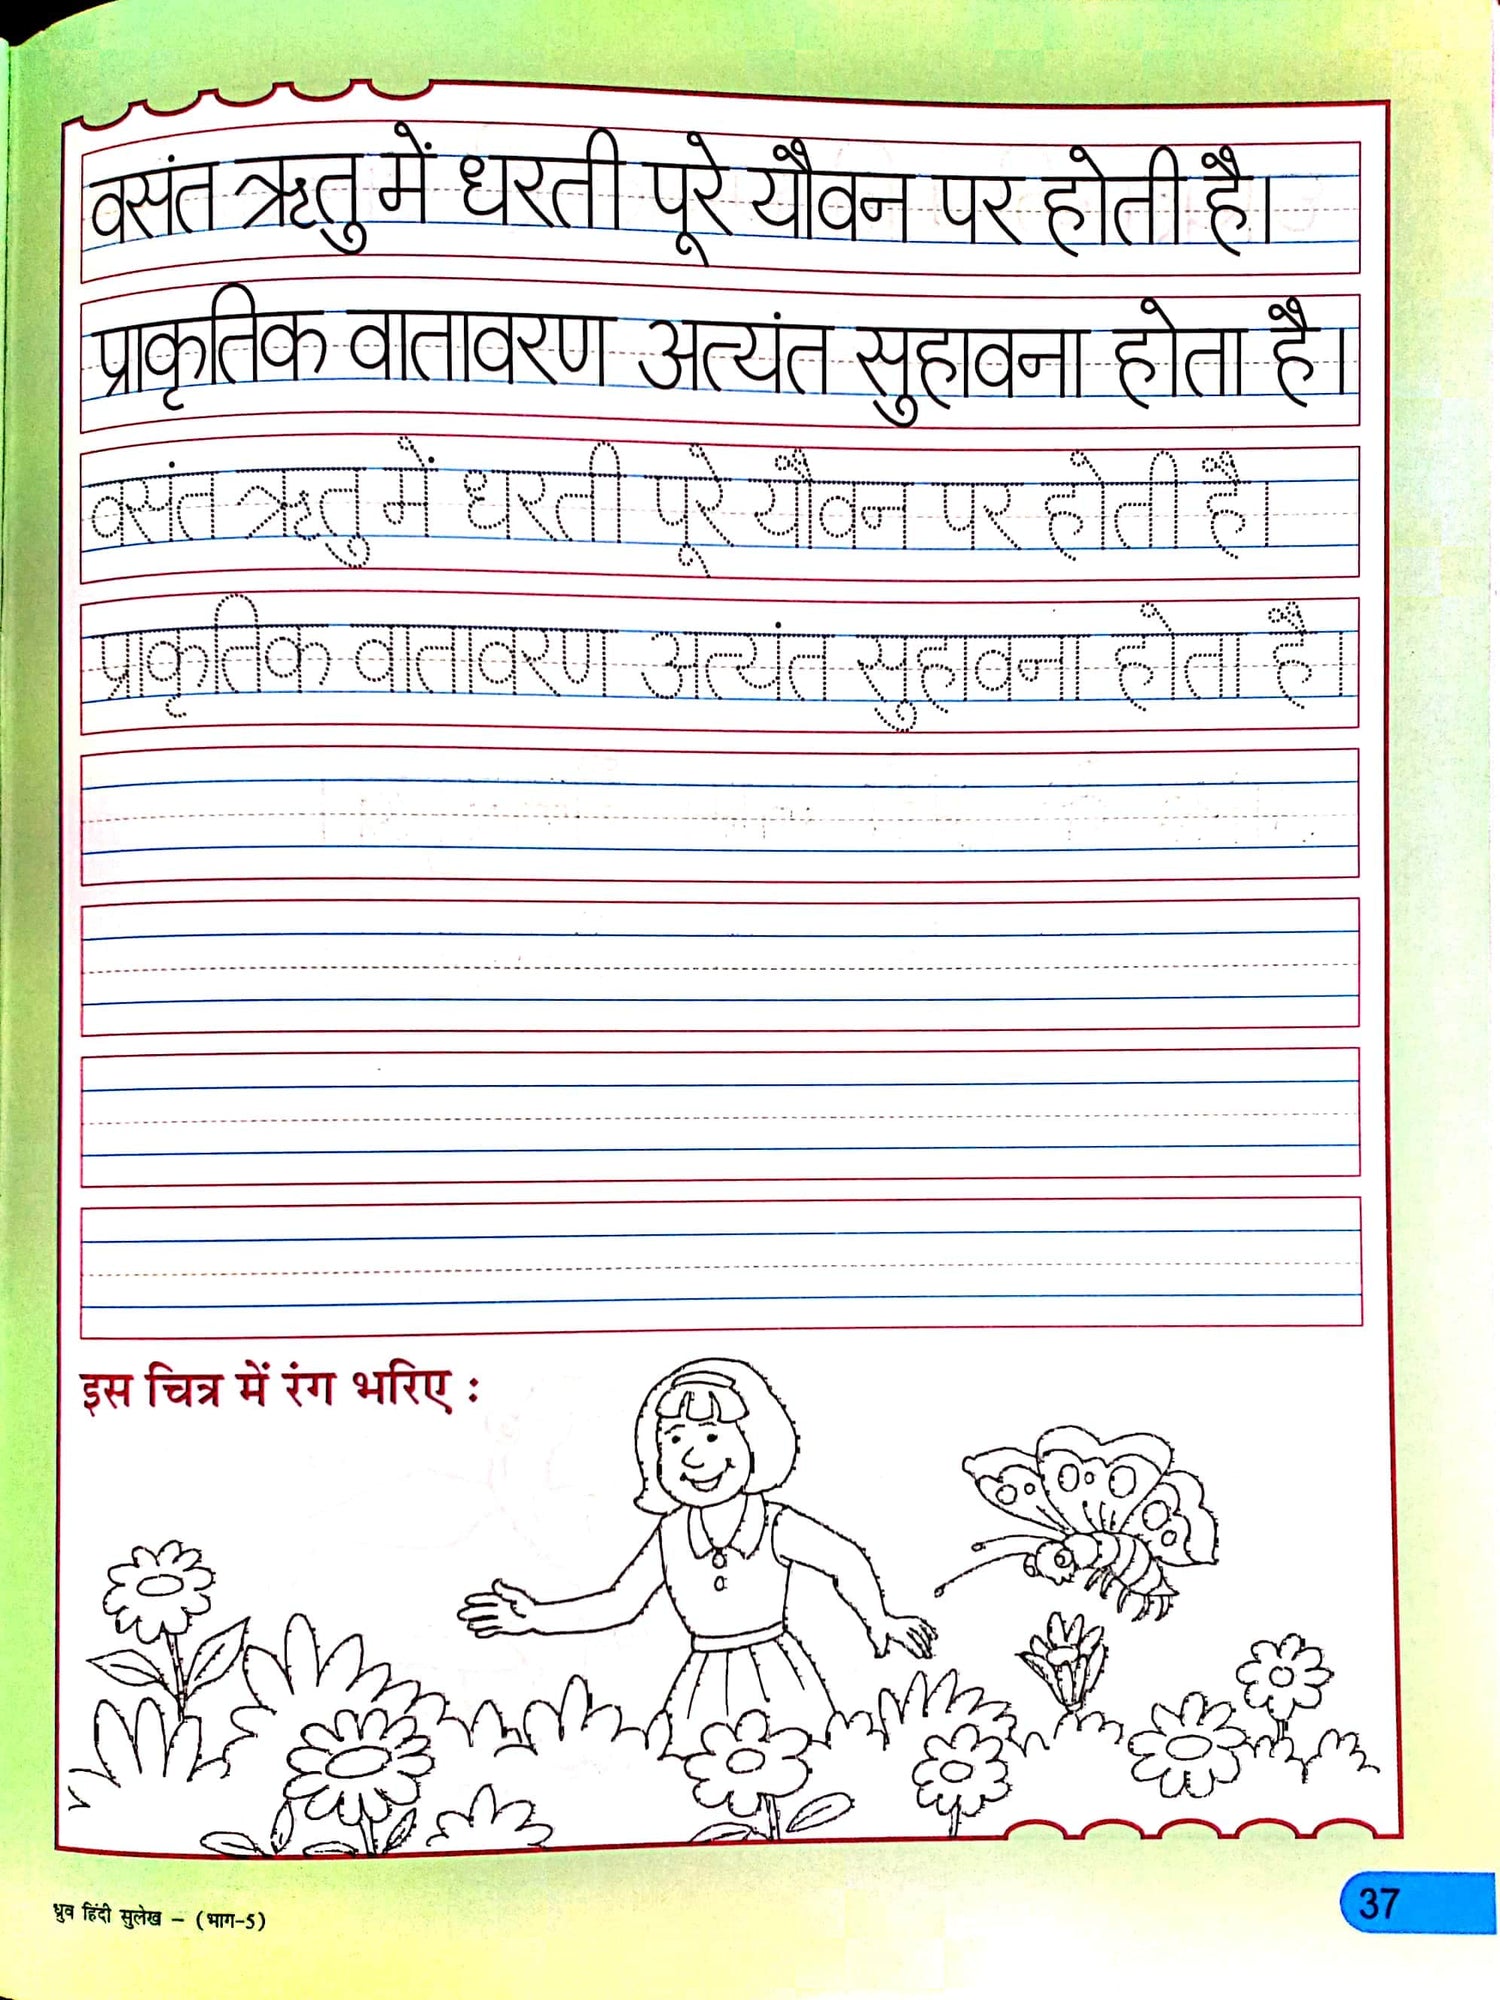 वसंत ऋतु में धरती पूरे यौवन पर होती है।
प्राकृतिक वातावरण अत्यंत सुहावना होता है।
वसंत ऋतु में धरती पूरे यौवन पर होती है।
प्राकृतिक वातावरण अत्यंत सुहावना होता है।
इस चित्र में रंग भरिए :
ध्रुव हिंदी सुलेख – (भाग-5)
37